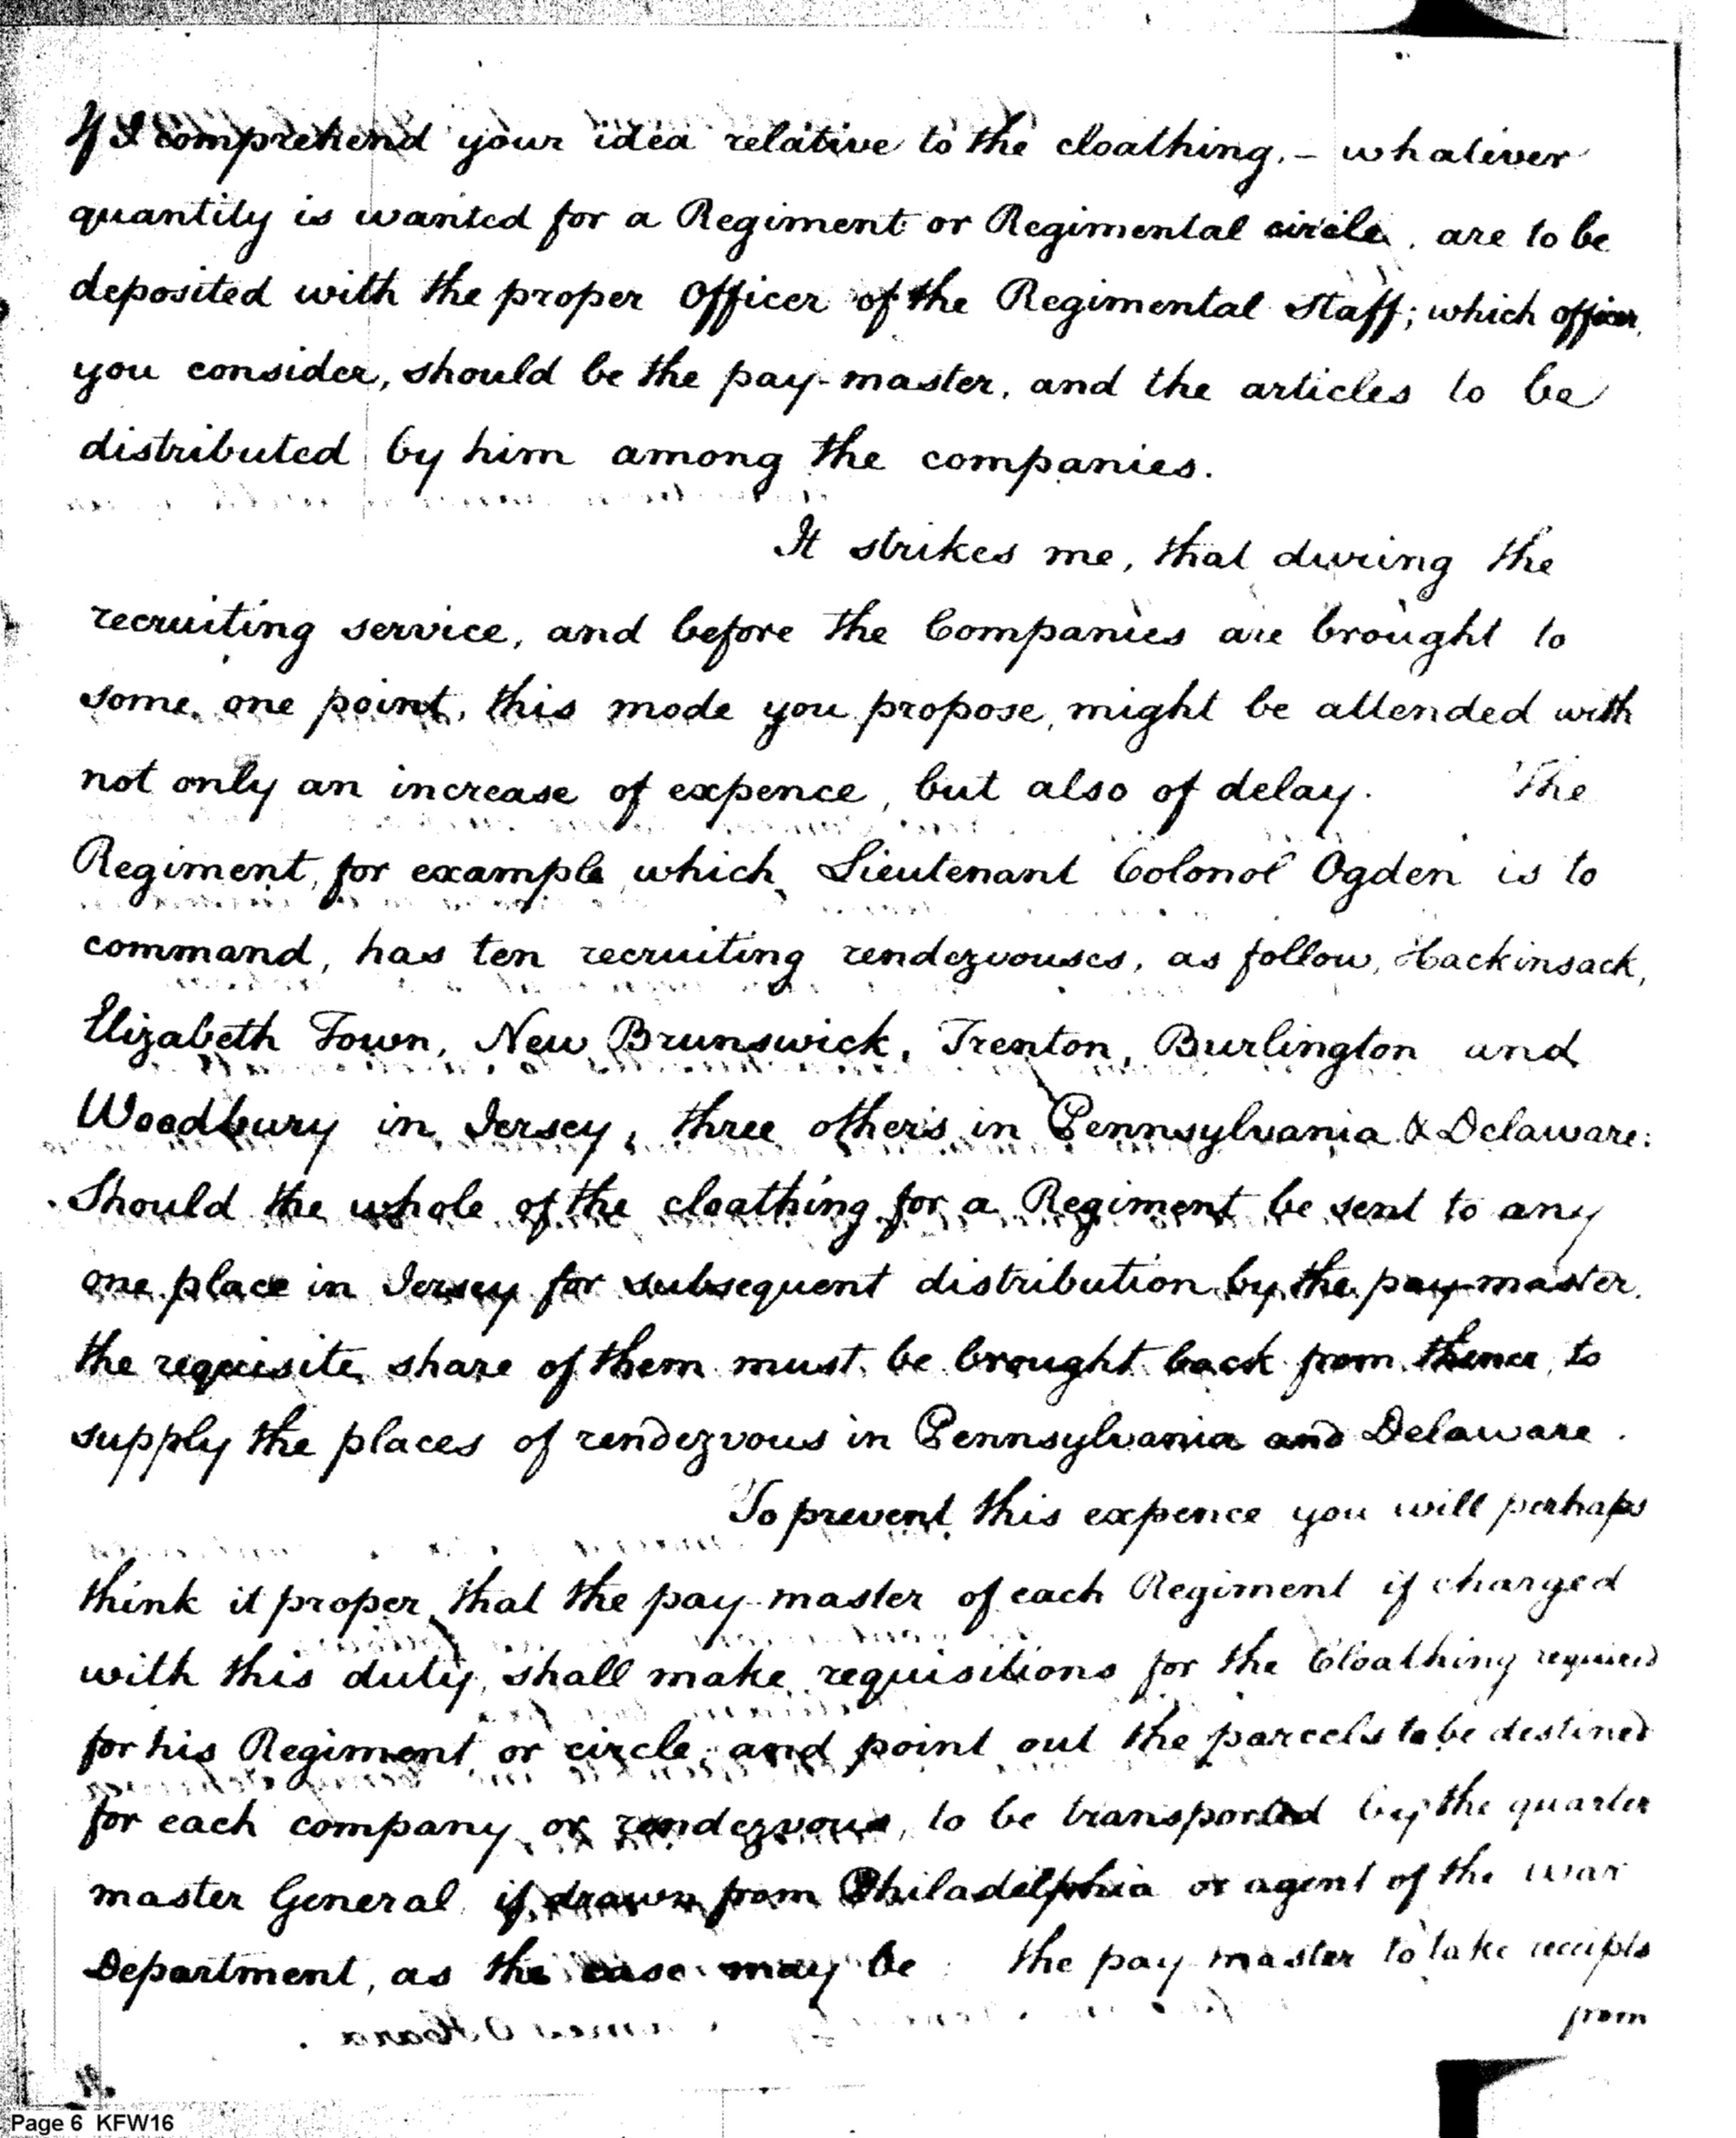 If I comprehend your idea relative to the cloathing, – whatever
quantity is wanted for a Regiment or Regimental circle, are to be
deposited with the proper Officer of the Regimental Staff; which officer,
you consider, should be the pay-master, and the articles to be
distributed by him among the companies.
It strikes me, that during the
recruiting service, and before the Companies are brought to
some one point, this mode you propose, might be attended with
not only an increase of expence, but also of delay. The
Regiment, for example, which Lieutenant Colonol Ogden is to
command, has ten recruiting rendezvouses, as follow, Hackinsack,
Elizabeth Town, New Brunswick, Trenton, Burlington and
Woodbury in Jersey, three others in Pennsylvania & Delaware:
Should the whole of the cloathing for a Regiment be sent to any
one place in Jersey for subsequent distribution by the pay-master,
the requisite share of them must be brought back from thence, to
supply the places of rendezvous in Pennsylvania and Delaware.
To prevent this expence you will perhaps
think it proper, that the pay-master of each Regiment if charged
with this duty, shall make requisitions for the Cloathing required
for his Regiment or circle, and point out the parcels to be destined
for each company or rendezvous, to be transported by the quarter
master General, if drawn from Philadelphia or agent of the war
Department, as the case may be: the pay master to take receipts
from
Page 6 KFW16